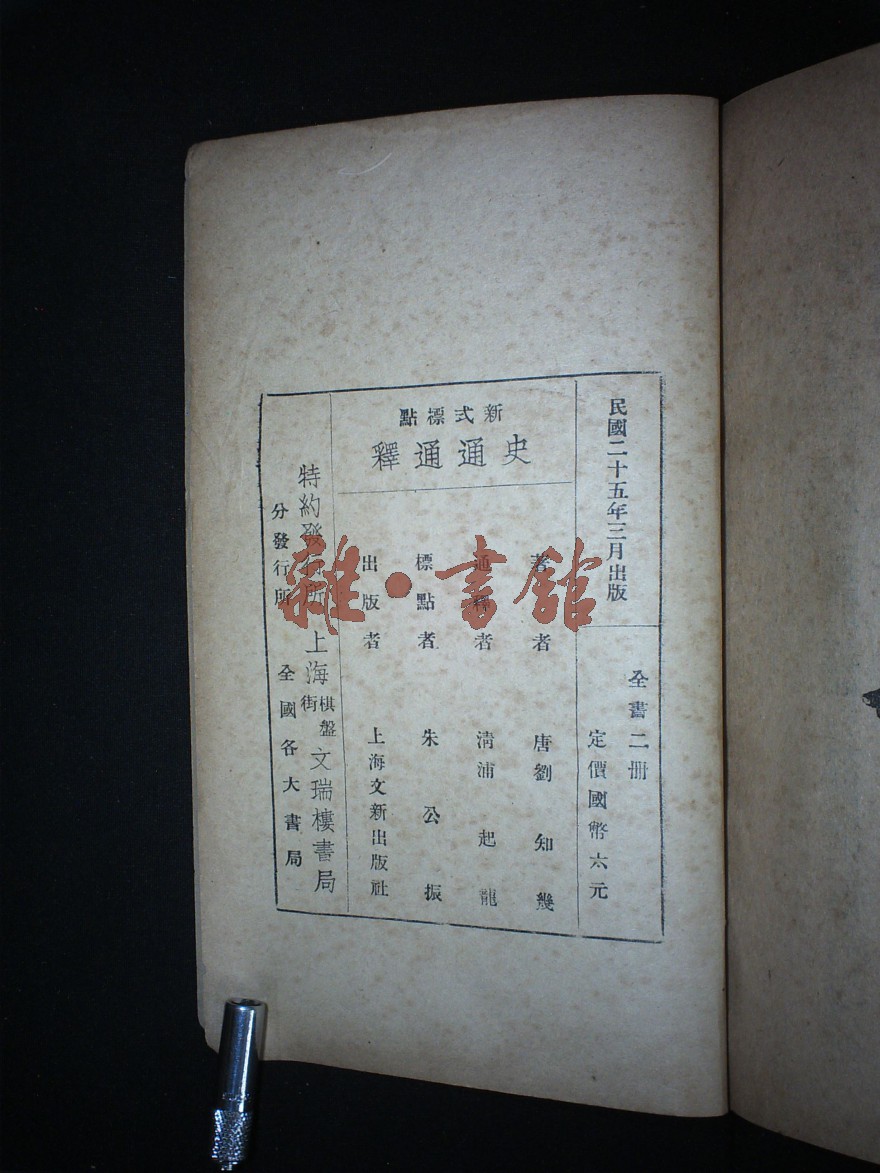 民國二十五年三月出版
全書二册
定價國幣六元
新式標點
史通通釋
著者 唐劉知幾
通釋者 淸浦起龍
標點者 朱公振
出版者 上海文新出版社
特約發行所 上海棋盤街文瑞樓書局
分發行所 全國各大書局
雜·書館